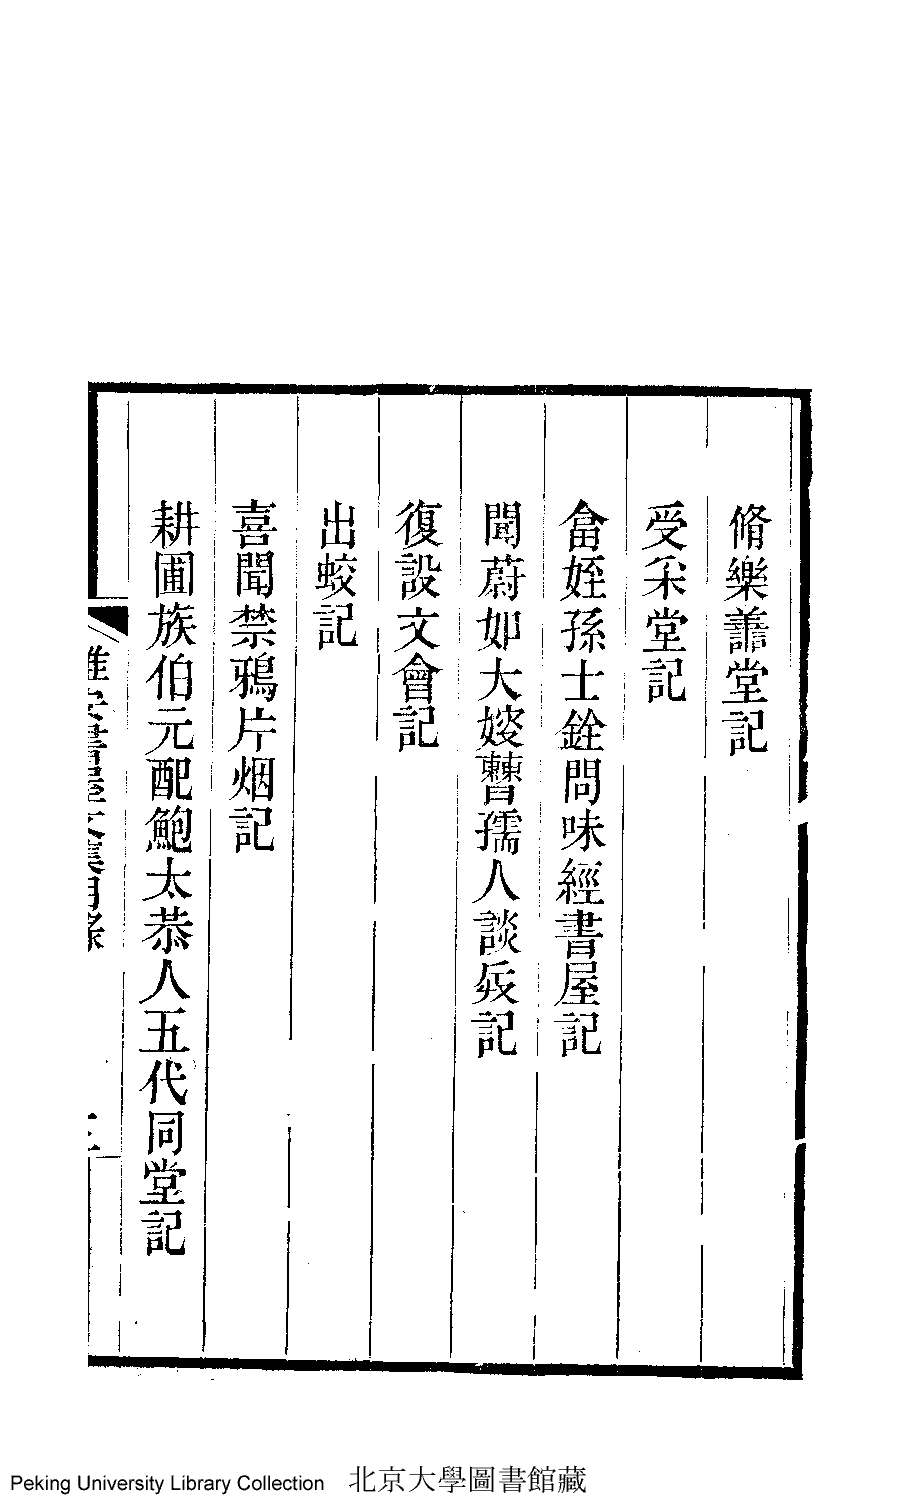 脩樂譱堂記
受采堂記
畣姪孫士銓問味經書屋記
聞蔚如大㛮曹孺人談兵記
復設文會記
出蛟記
喜聞禁鴉片烟記
耕圃族伯元配鮑太恭人五代同堂記
書屋文集目錄
Peking University Library Collection 北京大學圖書館藏